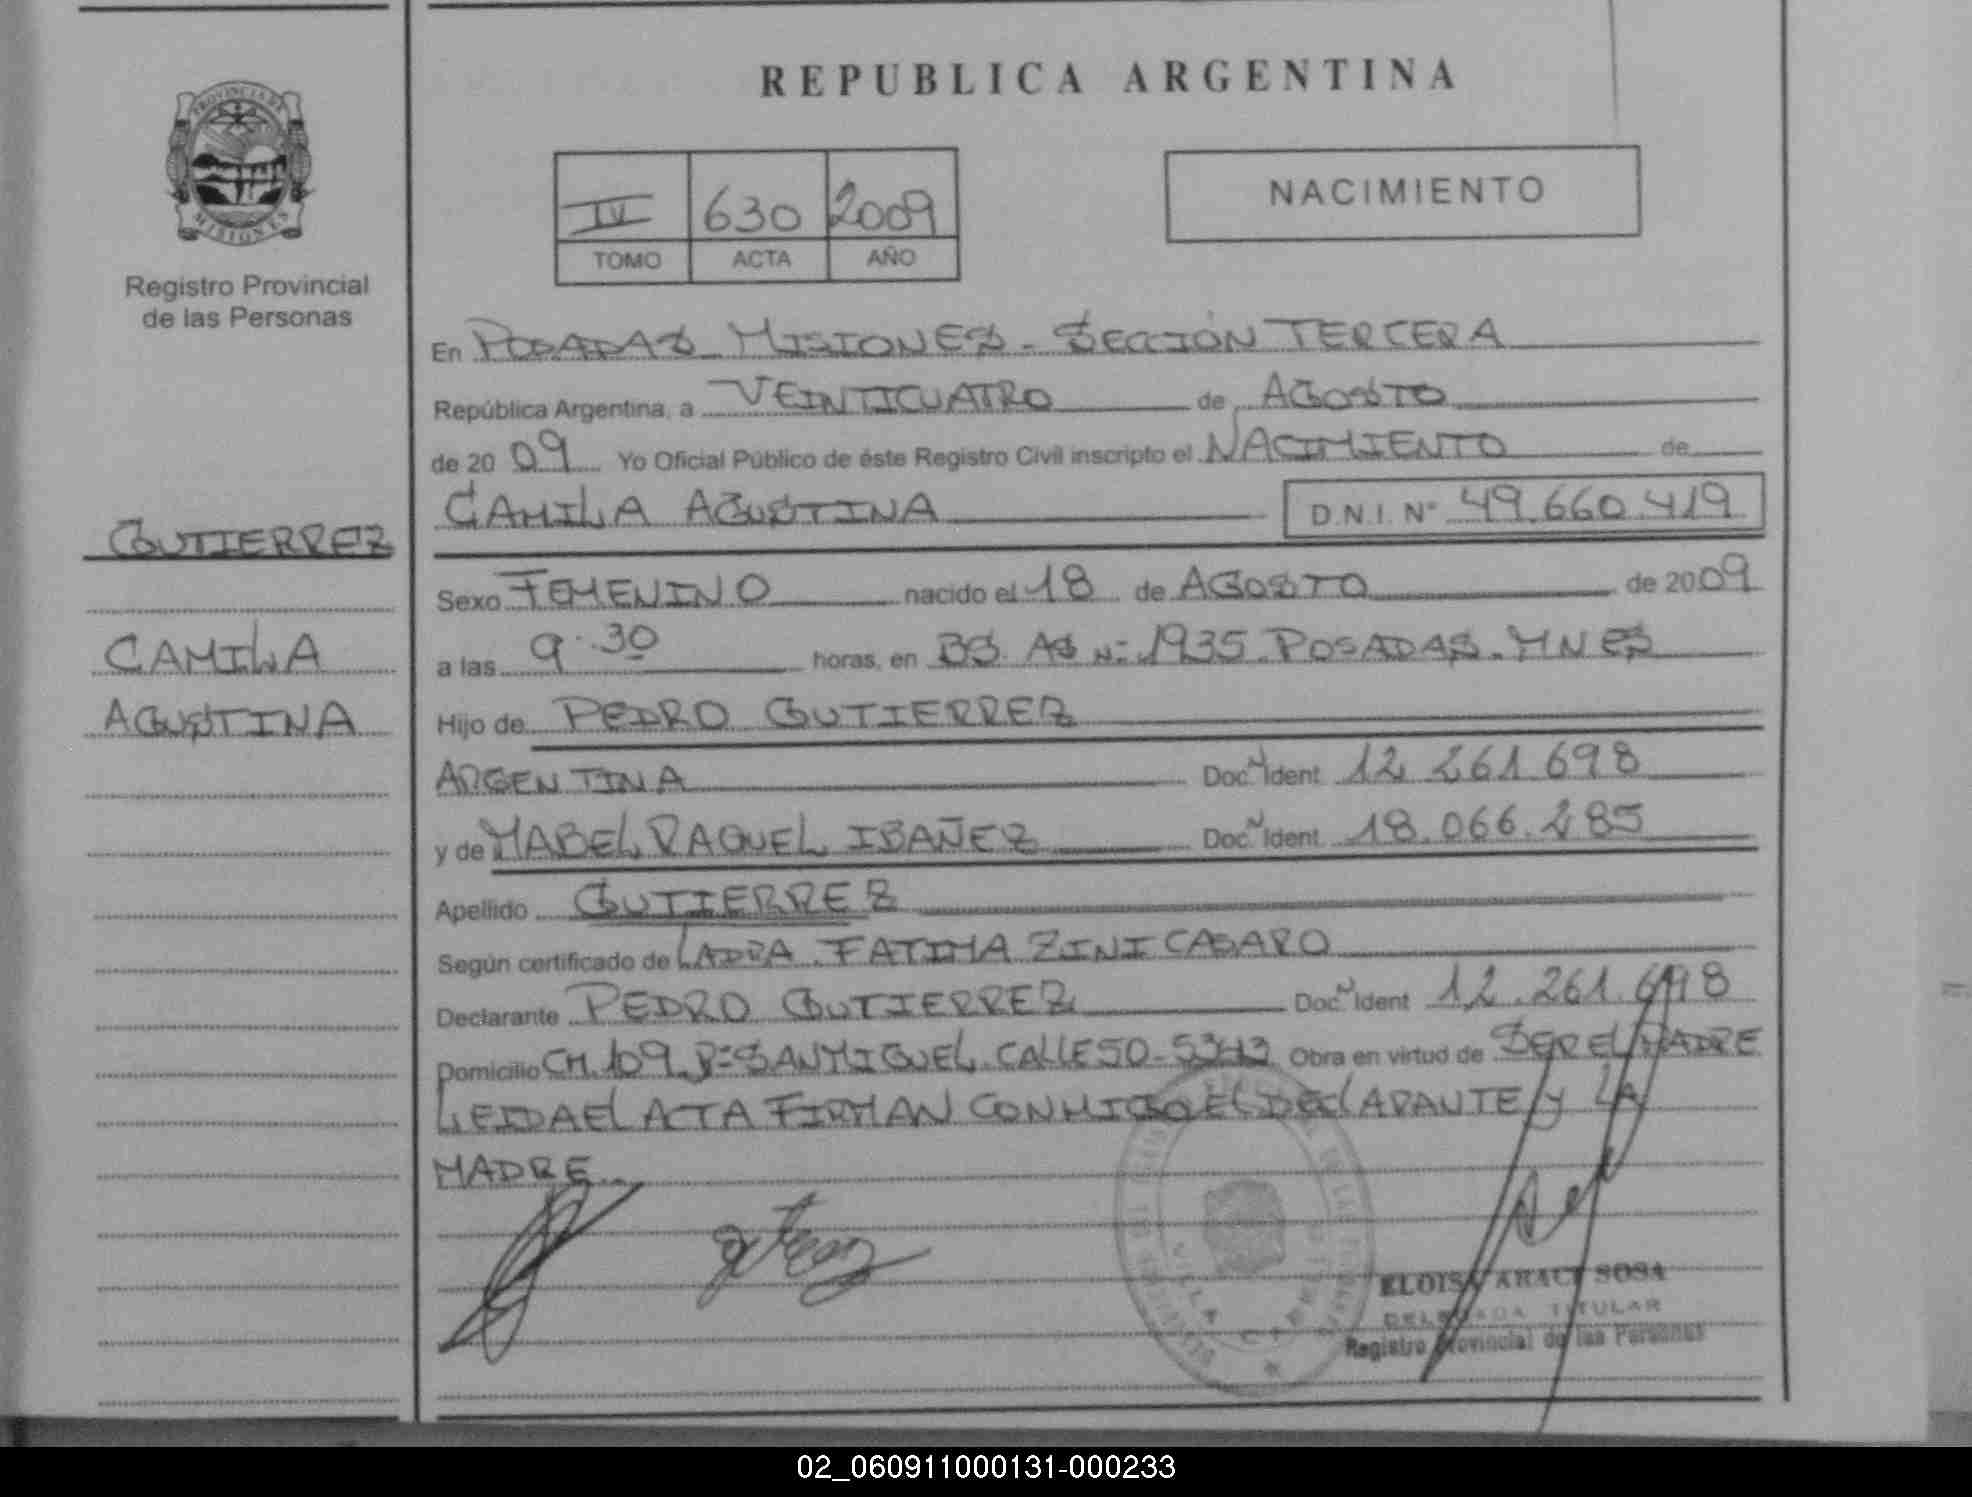 REPUBLICA ARGENTINA
PROVINCIA DE
MISIONES
Registro Provincial
de las Personas
IV 630 2009
TOMO ACTA AÑO
NACIMIENTO
En POSADAS MISIONES - SECCIÓN TERCERA
República Argentina, a VEINTICUATRO de AGOSTO
de 20 09 Yo Oficial Público de éste Registro Civil inscripto el NACIMIENTO de
CAMILA AGUSTINA D.N.I. Nº 49.660.419
GUTIERREZ
CAMILA
AGUSTINA
Sexo FEMENINO nacido el 18 de AGOSTO de 20 09
a las 9.30 horas, en BS. AS Nº 1935. POSADAS. MNES
Hijo de PEDRO GUTIERREZ
ARGENTINA Doc. Ident. 12 261.698
y de MABEL RAQUEL IBAÑEZ Doc. Ident. 18.066.285
Apellido GUTIERREZ
Según certificado de LA DRA. FATIMA ZINI CASARO
Declarante PEDRO GUTIERREZ Doc. Ident 12.261.698
Domicilio CH. 109. Bº SAN MIGUEL. CALLE 50 - 5343 Obra en virtud de SER EL PADRE
LEIDA EL ACTA FIRMAN CONMIGO EL DECLARANTE Y LA
MADRE..
VILLA
ELOISA ARACI SOSA
DELEGADA TITULAR
Registro Provincial de las Personas
02_060911000131-000233